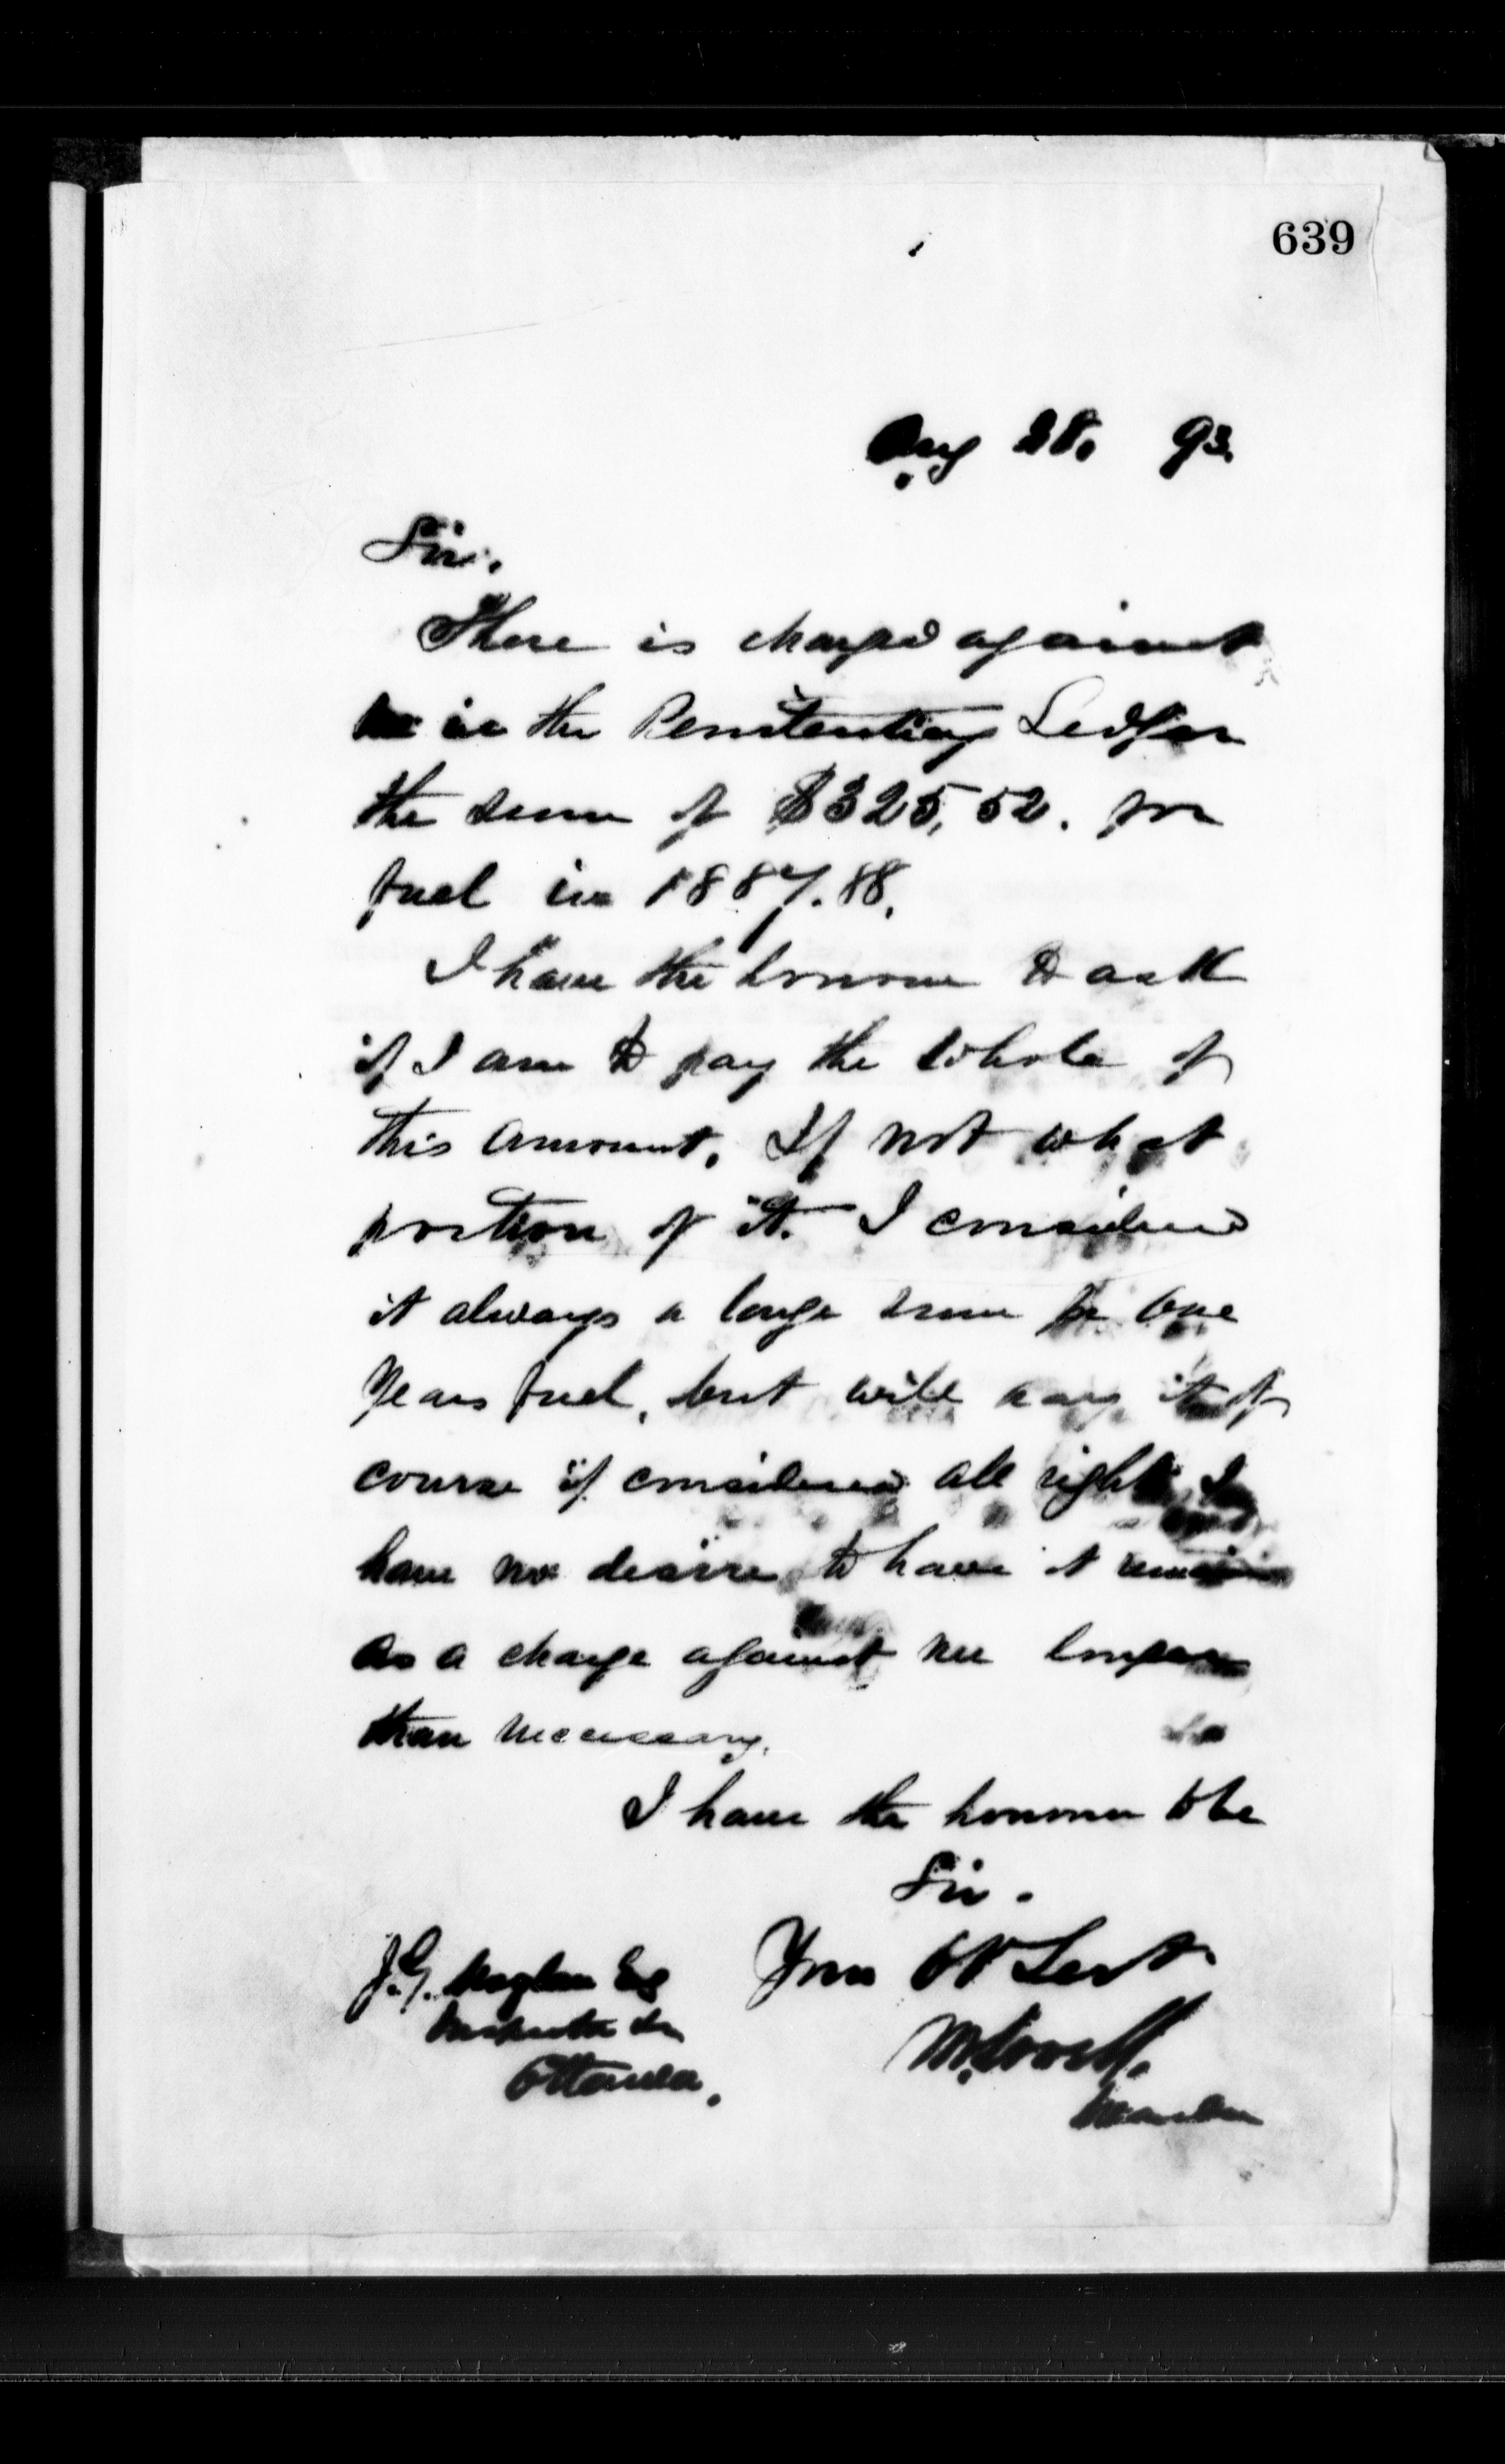 639
Aug 28. 93.
Sir.
There is charged against
me in the Penitentiary Ledger
the sum of $325,52. for
fuel in 1887.88.
I have the honour to ask
if I am to pay the whole of
this amount. If not what
portion of it. I considered
it always a large sum for one
years fuel, but will pay it of
course if considered all right. I
have no desire to have it remain
as a charge against me longer
than necessary.
I have the honour to be
Sir.
J.G. Moylan Esq
Your Ob Servt.
Inspector
Ottawa.
Warden